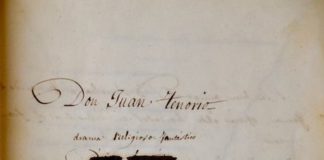 Don Juan tenorio
drama religioso fantastico